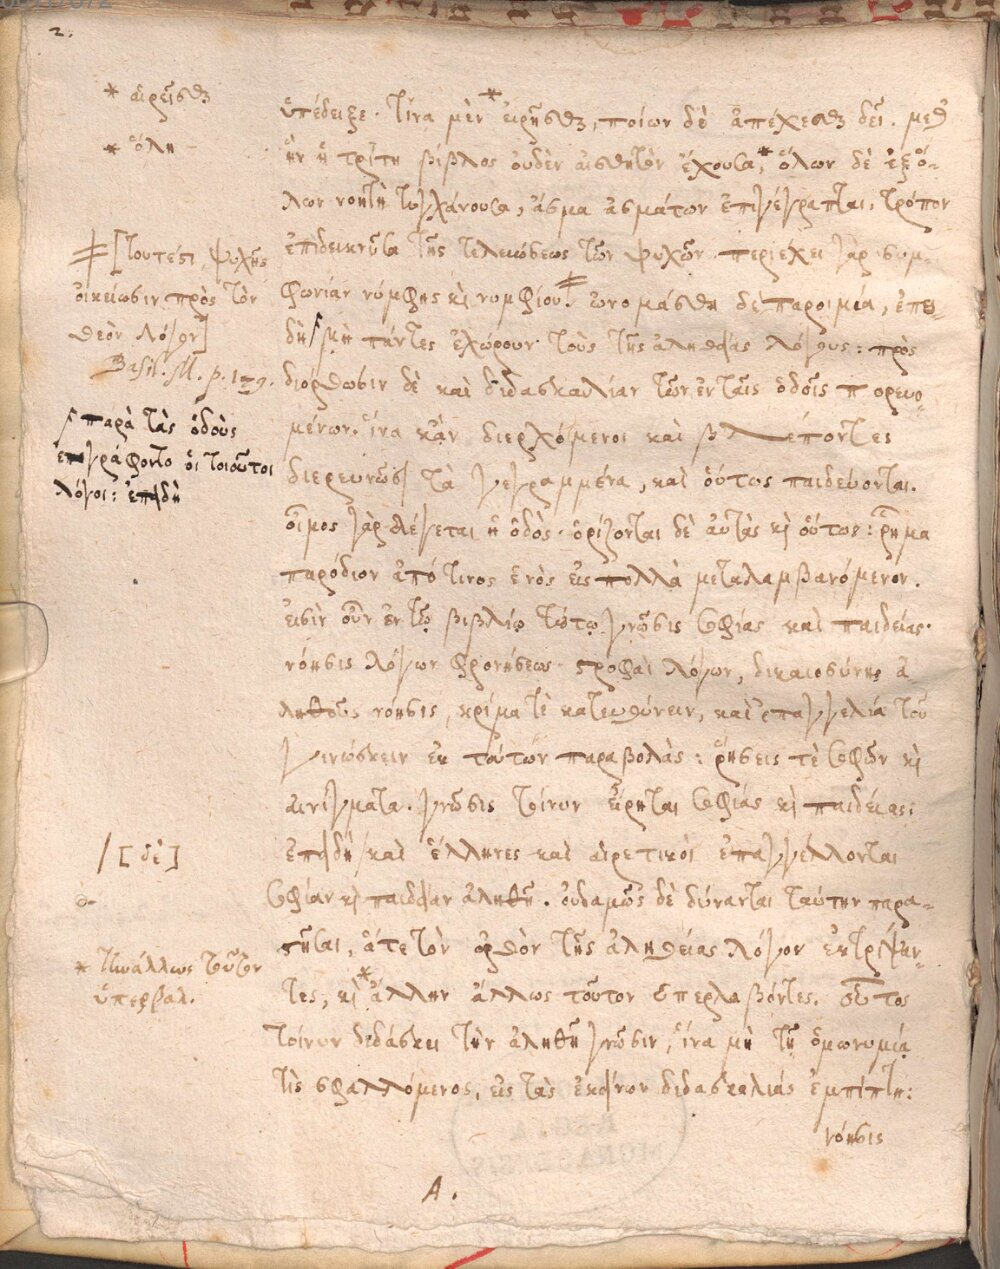 2.
* αἱρεῖσθαι
* ὅλη
ὑπέδειξε· τίνα μὲν * εἰρῆσθαι, ποίων δὲ ἀπέχεσθαι δεῖ. μεθ
ἣν ἡ τρίτη βίβλος οὐδὲν αἰσθητὸν ἔχουσα, * ὅλων δὲ ἐξ ὅ-
λων νοητὴ τυγχάνουσα, ἆσμα ἀσμάτων ἐπιγέγραπται, τρόπον
ἐπιδεικνῦσα τῆς τελειώσεως τῶν ψυχῶν. περιέχει γὰρ συμ-
φωνίαν νύμφης κὶ νυμφίου. ὠνομάσθη δὲ παροιμία, ἐπει
δὴ μὴ πάντες ἐχώρουν τοὺς τῆς ἀληθείας λόγους: πρὸς
διόρθωσιν δὲ καὶ διδασκαλίαν τῶν ἐν ταῖς ὁδοῖς πορευο-
μένων. ἵνα κἂν διερχόμενοι καὶ βλέποντες
διερευνῶσι τὰ γεγραμμένα, καὶ οὕτως παιδεύονται.
οἶμος γὰρ λέγεται ἡ ὁδὸς· ὁρίζονται δὲ αὐτὰς κὶ οὕτως: ῥῆμα
παρόδιον ἀπό τινος ἑνὸς εἰς πολλὰ μεταλαμβανόμενον.
εἰσὶν οὖν ἐν τῷ βιβλίῳ τούτῳ γνῶσις σοφίας καὶ παιδείας·
νόησις λόγων φρονήσεως· στροφαὶ λόγων, δικαιοσύνης ἀ-
ληθοῦς νόησις, κρίμα τὲ κατευθύνειν, καὶ ἐπαγγελία τοῦ
γινώσκειν ἐκ τούτων παραβολὰς: ῥήσεις τὲ σοφῶν κὶ
αἰνίγματα. γνῶσις τοίνυν εἴρηται σοφίας κὶ παιδείας:
ἐπειδὴ / καὶ ἕλληνες καὶ αἱρετικοὶ ἐπαγγέλλονται
σοφίαν κὶ παιδείαν ἀληθῆ. οὐδαμῶς δὲ δύνανται ταύτην παρα-
στῆσαι, ἅτε τὸν ὀρθὸν τῆς ἀληθείας λόγον ἐκτρίψαν-
τες, κὶ * ἄλλην ἄλλως τοῦτον ὑπερλαβόντες. οὗτος
τοίνυν διδάσκει τὴν ἀληθῆ γνῶσιν, ἵνα μὴ τῇ ὁμωνυμίᾳ
τὶς σφαλλόμενος, εἰς τὰς ἐκείνων διδασκαλίας ἐμπίπτῃ:
νόησις
[τουτέστι ψυχῆς
οἰκείωσιν πρὸς τὸν
θεὸν λόγον]
Basil. M. p. 179.
παρὰ τὰς ὁδοὺς
ἐπεγράφοντο οἱ τοιοῦτοι
λόγοι: ἐπειδὴ
/ [δὲ]
* τὴν ἄλλως τοῦτον
ὑπερβαλ.
A.